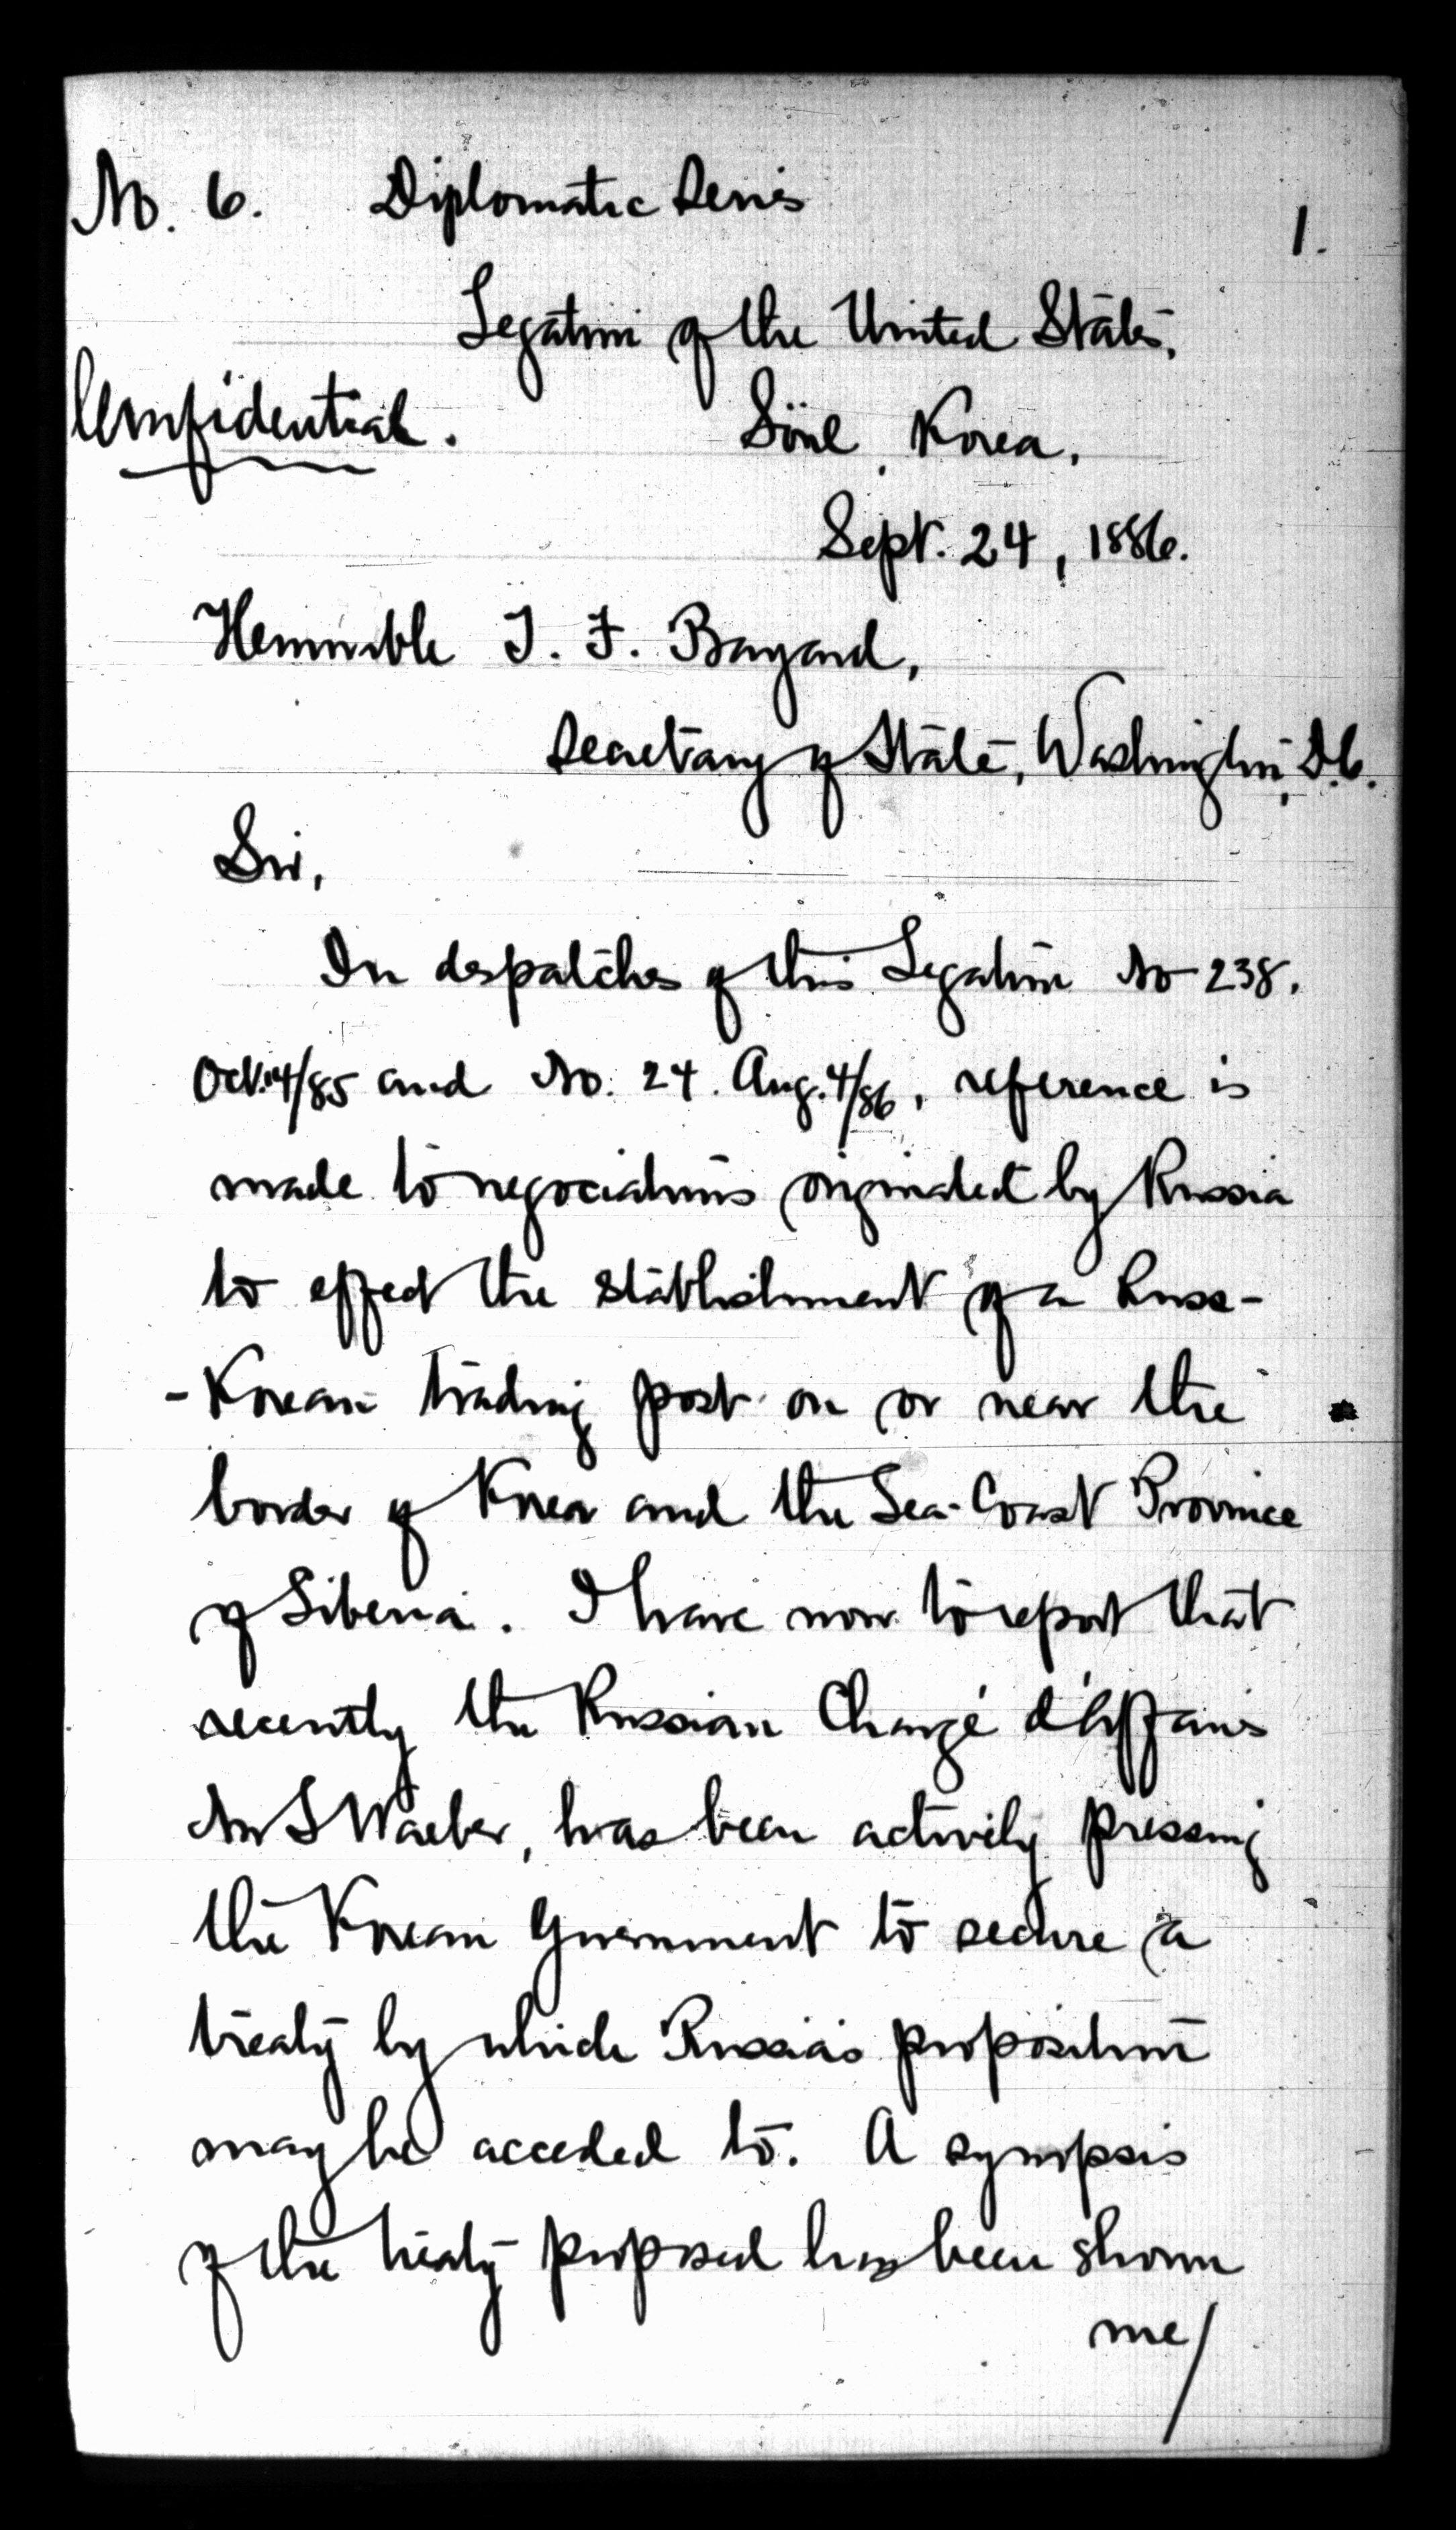 No. 6. Diplomatic Series
1.
Legation of the United States,
Confidential.
Söul, Korea,
Sept. 24, 1886.
Honorable T. F. Bayard,
Secretary of State, Washington, D.C.
Sir,
In despatches of this Legation No 238.
Oct. 14/85 and No. 24. Aug. 4/86, reference is
made to negociations originated by Russia
to effect the establishment of a Russo-
-Korean trading post on or near the
border of Korea and the Sea-Coast Province
of Siberia. I have now to report that
recently the Russian Chargé d'Affaires
Mr Waeber, has been actively pressing
the Korean Government to secure a
treaty by which Russia's proposition
may be acceded to. A synopsis
of the treaty proposed has been shown
me/